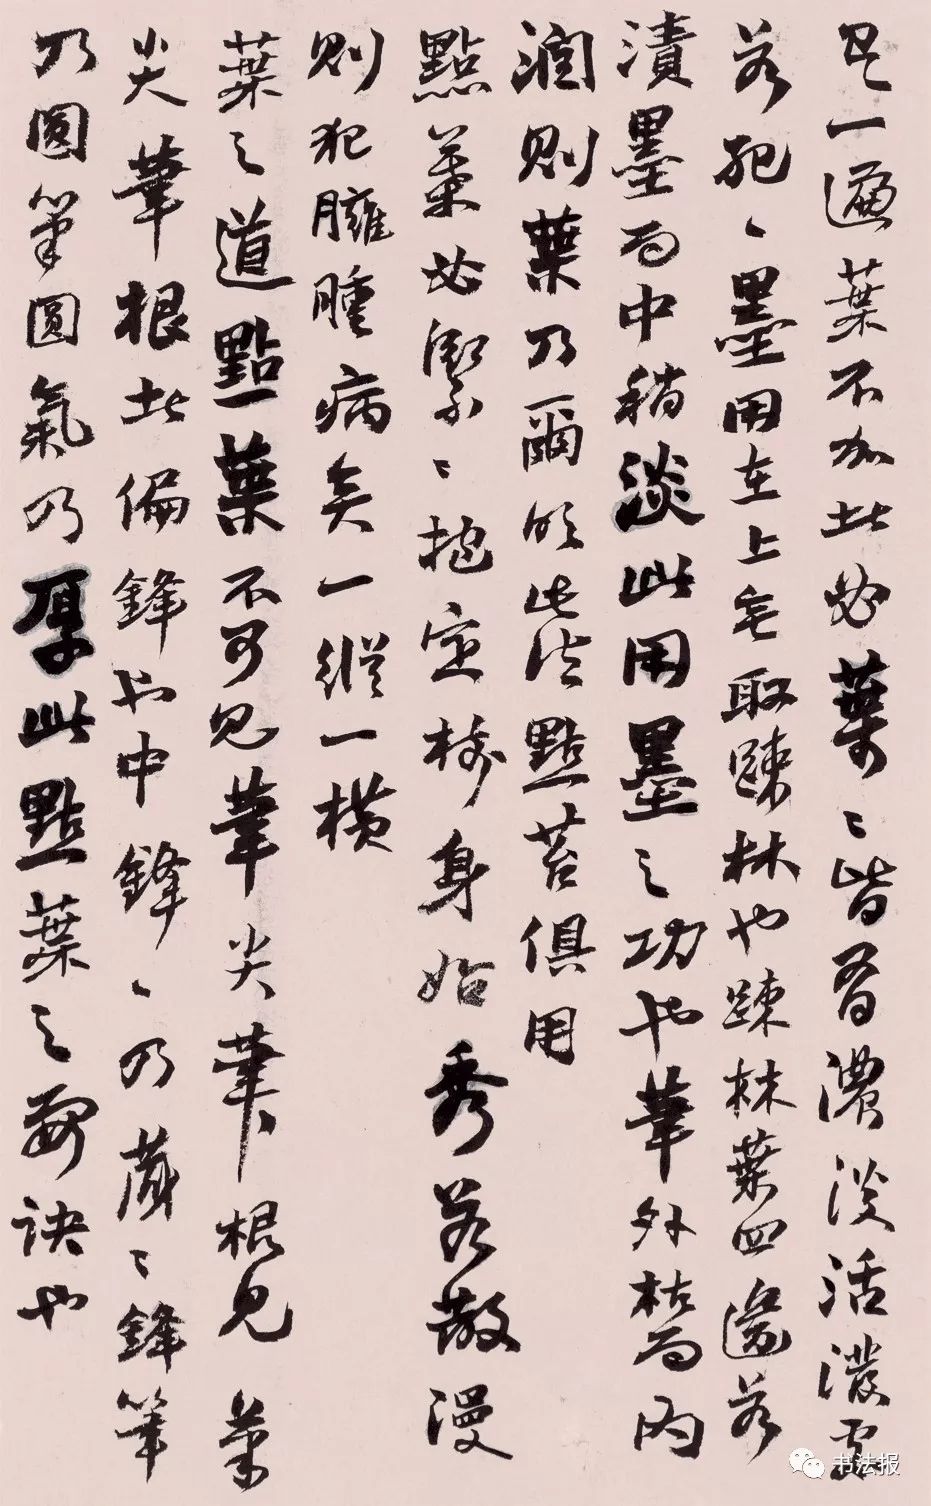 是一遍葉不加此必葉〻皆有濃淡活潑處
若犯〻墨用在上毛取踈林也踈林葉四邊若
漬墨而中稍淡此用墨之功也筆外枯而内
潤則葉乃爾的此法點苔俱用
點葉必緊〻抱定樹身始秀若散漫
則犯臃腫病矣一縱一橫
葉之道點葉不可見筆尖筆根見筆
尖筆根此偏鋒也中鋒〻乃藏〻鋒筆
乃圓筆圓氣乃厚此點葉之要訣也
书法报